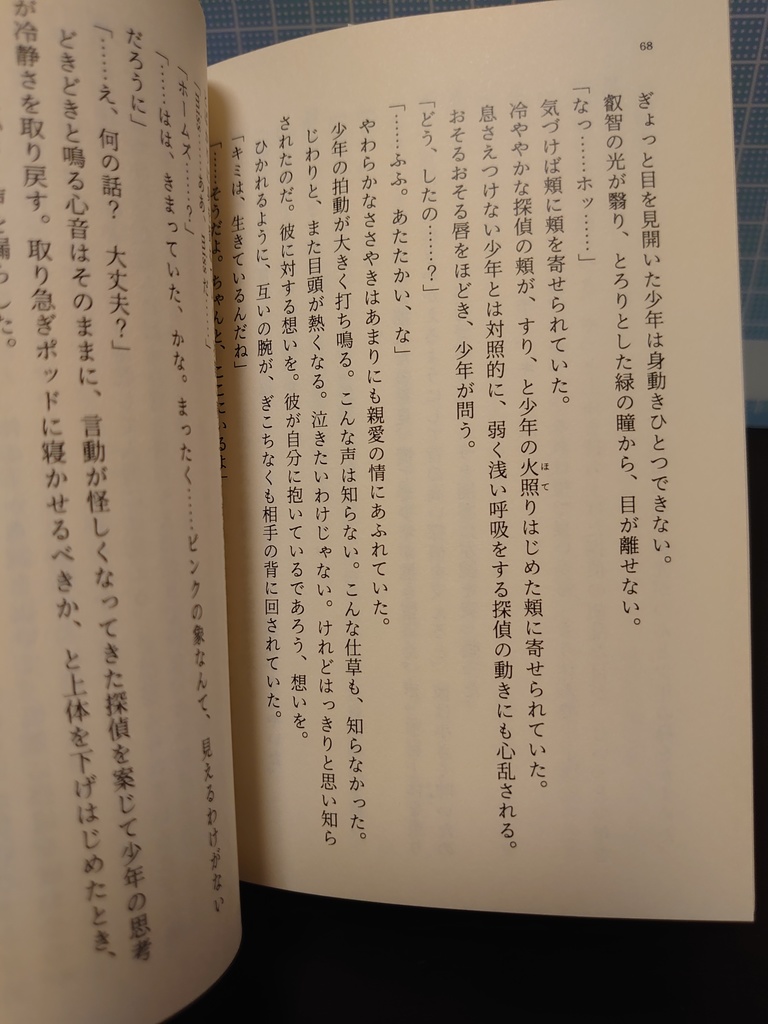 68
ぎょっと目を見開いた少年は身動きひとつできない。
叡智の光が翳り、とろりとした緑の瞳から、目が離せない。
「なっ……ホッ……」
気づけば頬に頬を寄せられていた。
冷ややかな探偵の頬が、すり、と少年の火照りはじめた頬に寄せられていた。
ほて
息さえつけない少年とは対照的に、弱く浅い呼吸をする探偵の動きにも心乱される。
おそるおそる唇をほどき、少年が問う。
「どう、したの……？」
「……ふふ。あたたかい、な」
やわらかなささやきはあまりにも親愛の情にあふれていた。
少年の拍動が大きく打ち鳴る。こんな声は知らない。こんな仕草も、知らなかった。
じわりと、また目頭が熱くなる。泣きたいわけじゃない。けれどはっきりと思い知ら
されたのだ。彼に対する想いを。彼が自分に抱いているであろう、想いを。
ひかれるように、互いの腕が、ぎこちなくも相手の背に回されていた。
「キミは、生きているんだね」
「……そうだよ。ちゃんと、ここにいるよ」
「ホームズ……？」
「……はは、きまっていた、かな。まったく……ピンクの象なんて、見えるわけがない
だろうに」
「……え、何の話？　大丈夫？」
どきどきと鳴る心音はそのままに、言動が怪しくなってきた探偵を案じて少年の思考
が冷静さを取り戻す。取り急ぎポッドに寝かせるべきか、と上体を下げはじめたとき、
漏らした。